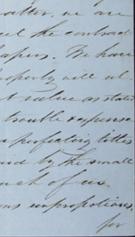 matter, we are
the contract
papers. We have
property will al
value as stated
trouble expense
perfecting titles
and by the small
each of us.
ons unpropitious,
for